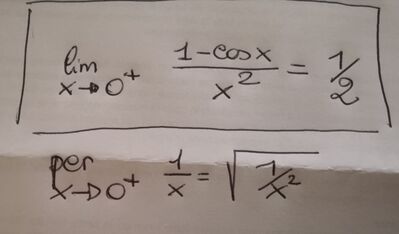 lim x→0⁺ 1-cosx/x² = 1/2
per x→0⁺ 1/x = √(1/x²)